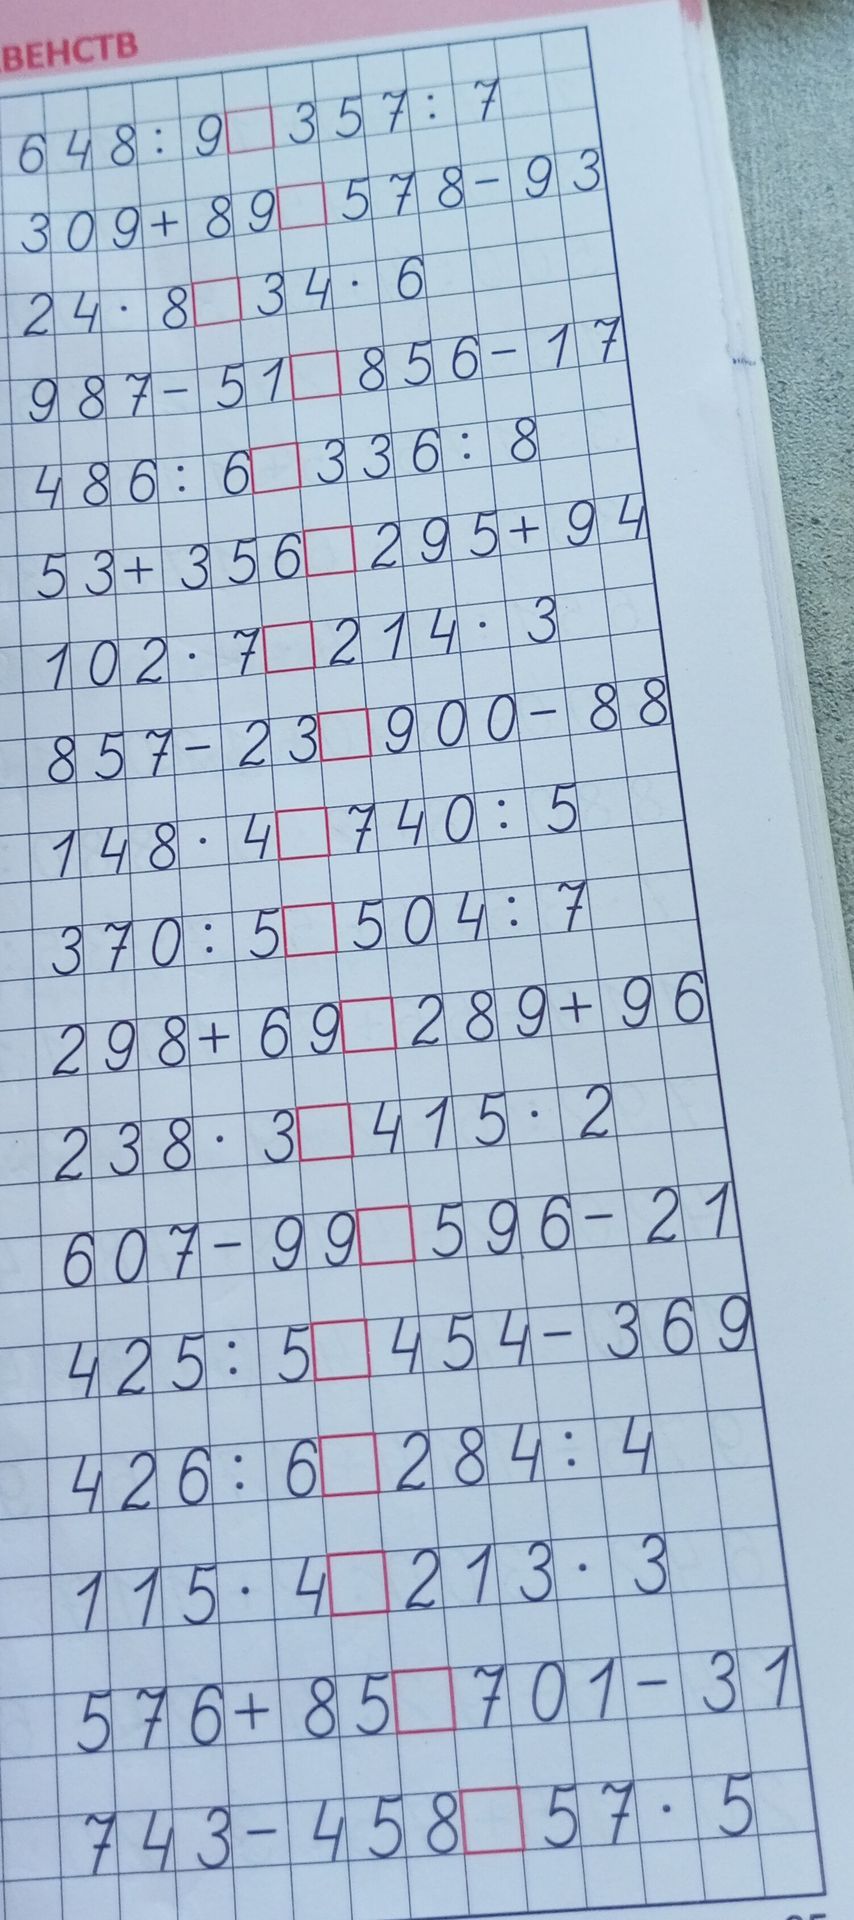 ВЕНСТВ
648:9□357:7
309+89□578-93
24·8□34·6
987-51□856-17
486:6□336:8
53+356□295+94
102·7□214·3
857-23□900-88
148·4□740:5
370:5□504:7
298+69□289+96
238·3□415·2
607-99□596-21
425:5□454-369
426:6□284:4
115·4□213·3
576+85□701-31
743-458□57·5